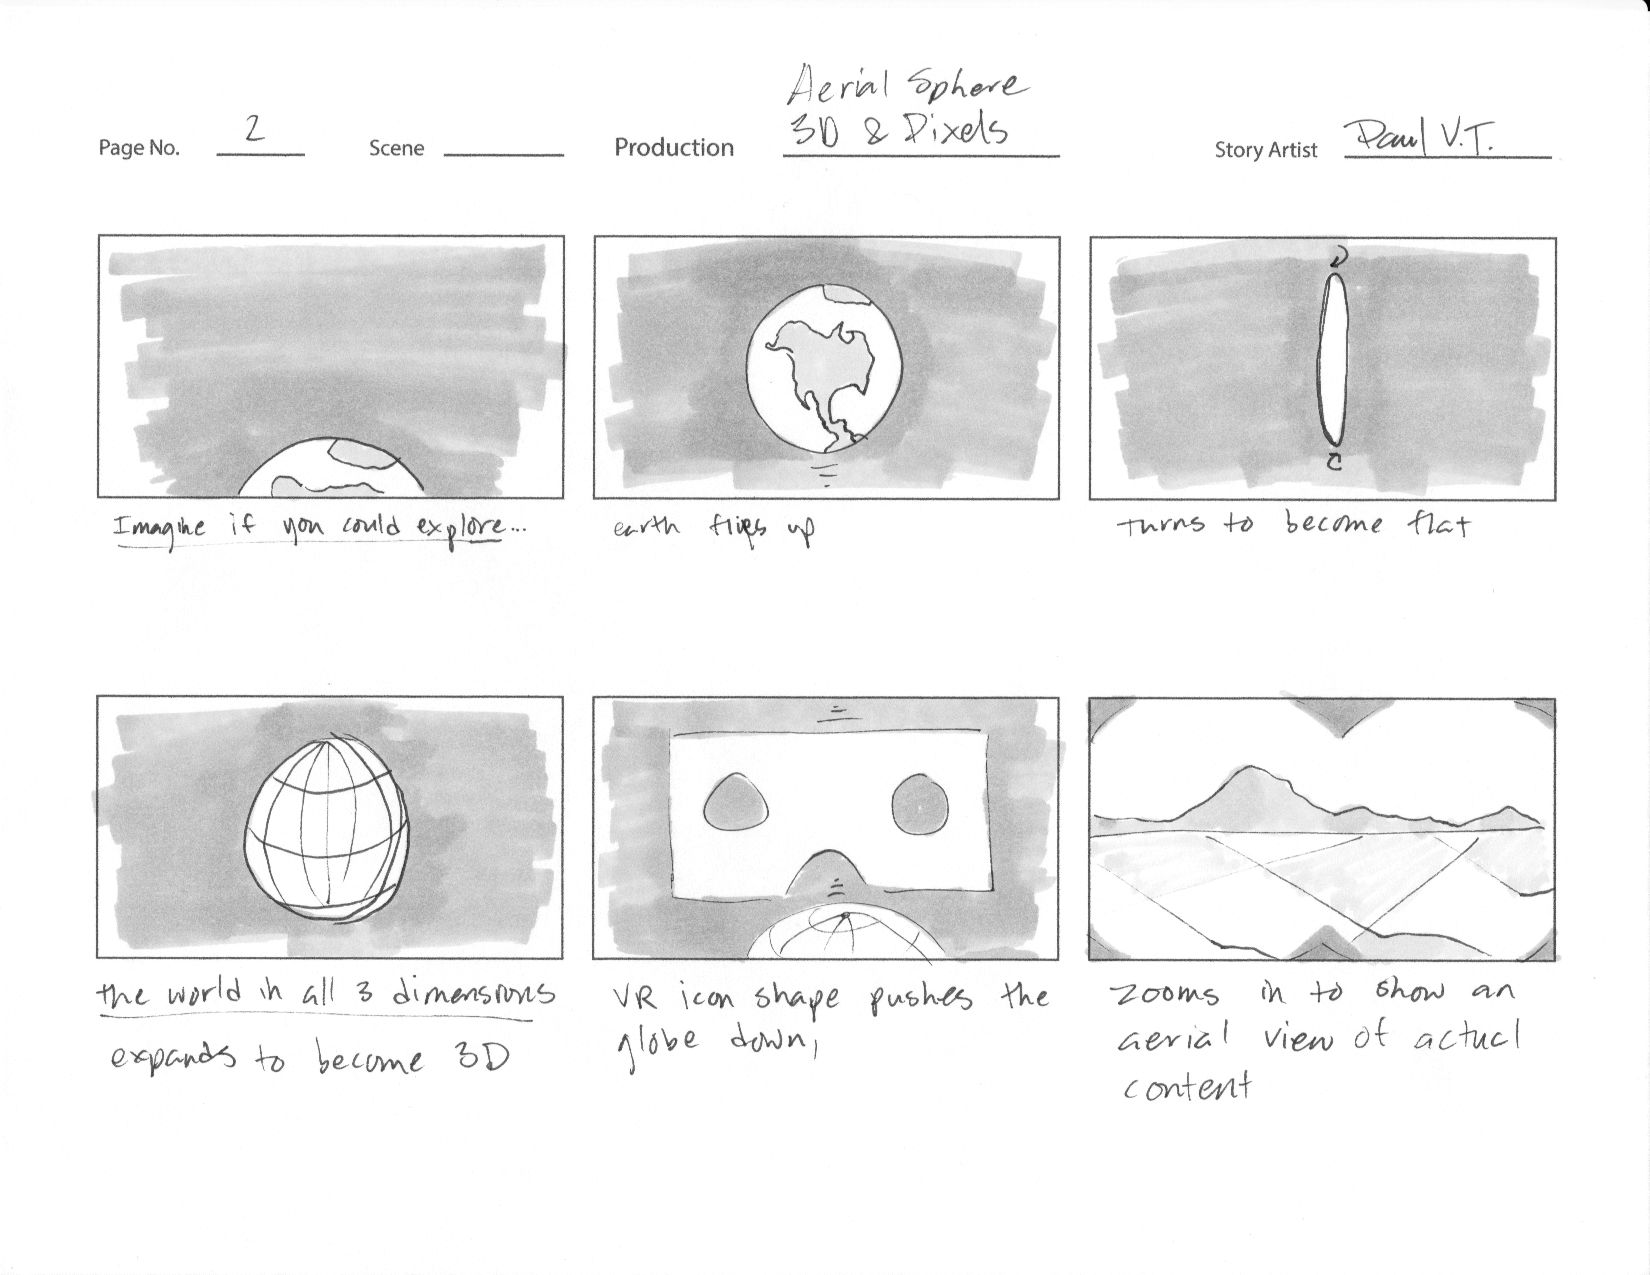 Aerial Sphere
Page No. 2 Scene Production 3D & Pixels Story Artist Paul V.T.
Imagine if you could explore...
earth flies up
turns to become flat
the world in all 3 dimensions
expands to become 3D
VR icon shape pushes the
globe down,
zooms in to show an
aerial view of actual
content